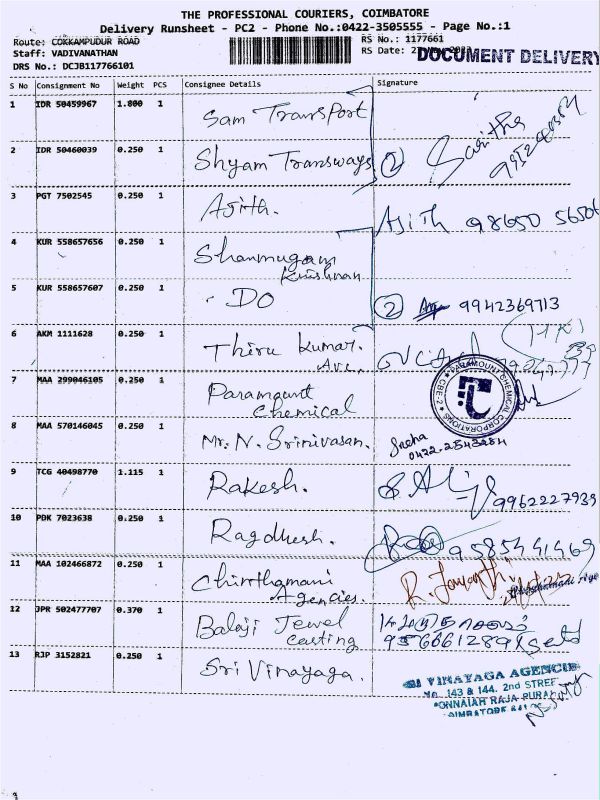 THE PROFESSIONAL COURIERS, COIMBATORE
Delivery Runsheet - PC2 - Phone No.:0422-3505555 - Page No.:1
Route: COKKAMPUDUR ROAD
RS No.: 1177661
Staff: VADIVANATHAN
RS Date:
DOCUMENT DELIVERY
DRS No.: DCJB117766101
S No Consignment No Weight PCS Consignee Details Signature
1 IDR 50459967 1.800 1 Sam Transport
2 IDR 50460039 0.250 1 Shyam Transways 2 Saritha
3 PGT 7502545 0.250 1 Ajith. Ajith 98650
4 KUR 558657656 0.250 1 Shanmugam Krishnan
5 KUR 558657607 0.250 1 DO 2 9942369713
6 AKM 1111628 0.250 1 Thiru Kumar. Ave.
7 MAA 299046105 0.250 1 Paramount Chemical
PARAMOUNT CHEMICAL CORPORATIONS CBE-2
8 MAA 570146045 0.250 1 Mr. N. Srinivasan. Sneha
0422-2543284
9 TCG 40498770 1.115 1 Rakesh. 9962227939
10 PDK 7023638 0.250 1 Ragdhesh. 9585441469
11 MAA 102466872 0.250 1 Chinthamani Agencies. R. Jayanthi
12 JPR 502477707 0.370 1 Balaji Jewel casting
9566612891
13 RJP 3152821 0.250 1 Sri Vinayaga.
VINAYAGA AGENCIE
No. 143 & 144. 2nd STREE
PONNAIAH RAJA PURA